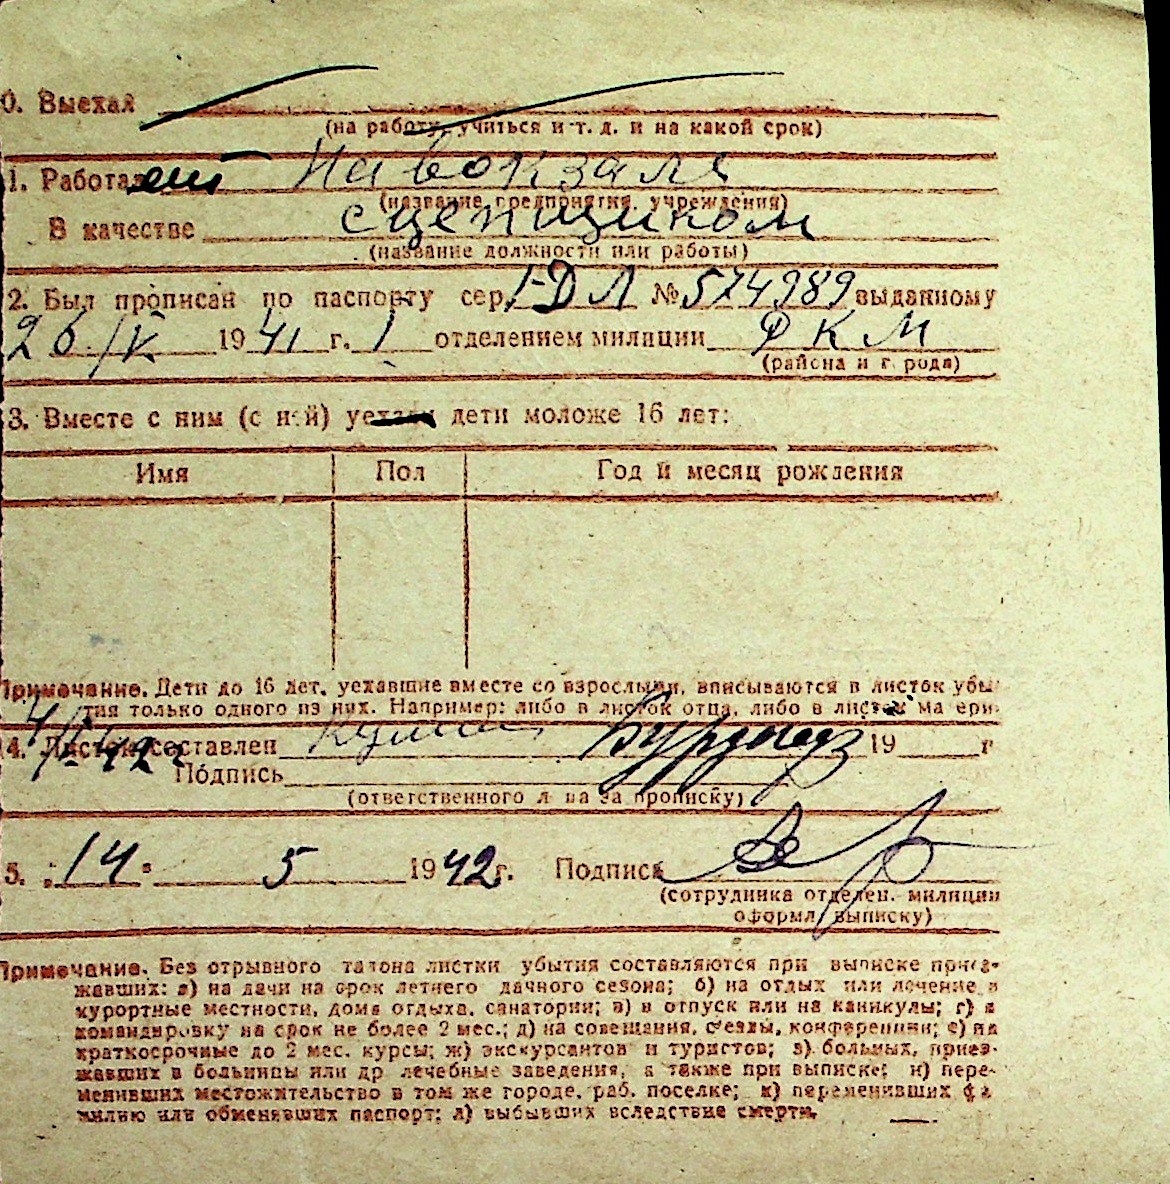 0. Выехал
(на работу, учиться и т. д. и на какой срок)
1. Работает на вокзале
(название предприятия, учреждения)
В качестве сцепщиком
(название должности или работы)
2. Был прописан по паспорту сер. I-ДЛ № 574989 выданному
26/IV 1941 г. 1 отделением милиции РКМ
(района и города)
3. Вместе с ним (с ней) уехали дети моложе 16 лет:
Имя Пол Год и месяц рождения
Примечание. Дети до 16 лет, уехавшие вместе со взрослыми, вписываются в листок убы-
тия только одного из них. Например: либо в листок отца, либо в листок матери.
4. Листок составлен 19 г
Подпись
(ответственного лица за прописку)
5. 14 5 1942 г. Подпись
(сотрудника отделен. милиции
оформл. выписку)
Примечание. Без отрывного талона листки убытия составляются при выписке приез-
жавших: а) на дачи на срок летнего дачного сезона; б) на отдых или лечение в
курортные местности, дома отдыха, санатории; в) в отпуск или на каникулы; г) в
командировку на срок не более 2 мес.; д) на совещания, съезды, конференции; е) на
краткосрочные до 2 мес. курсы; ж) экскурсантов и туристов; з) больных, приез-
жавших в больницы или др лечебные заведения, а также при выписке; и) пере-
менивших местожительство в том же городе, раб. поселке; к) переменивших фа
милию или обменявших паспорт; л) выбывших вследствие смерти.